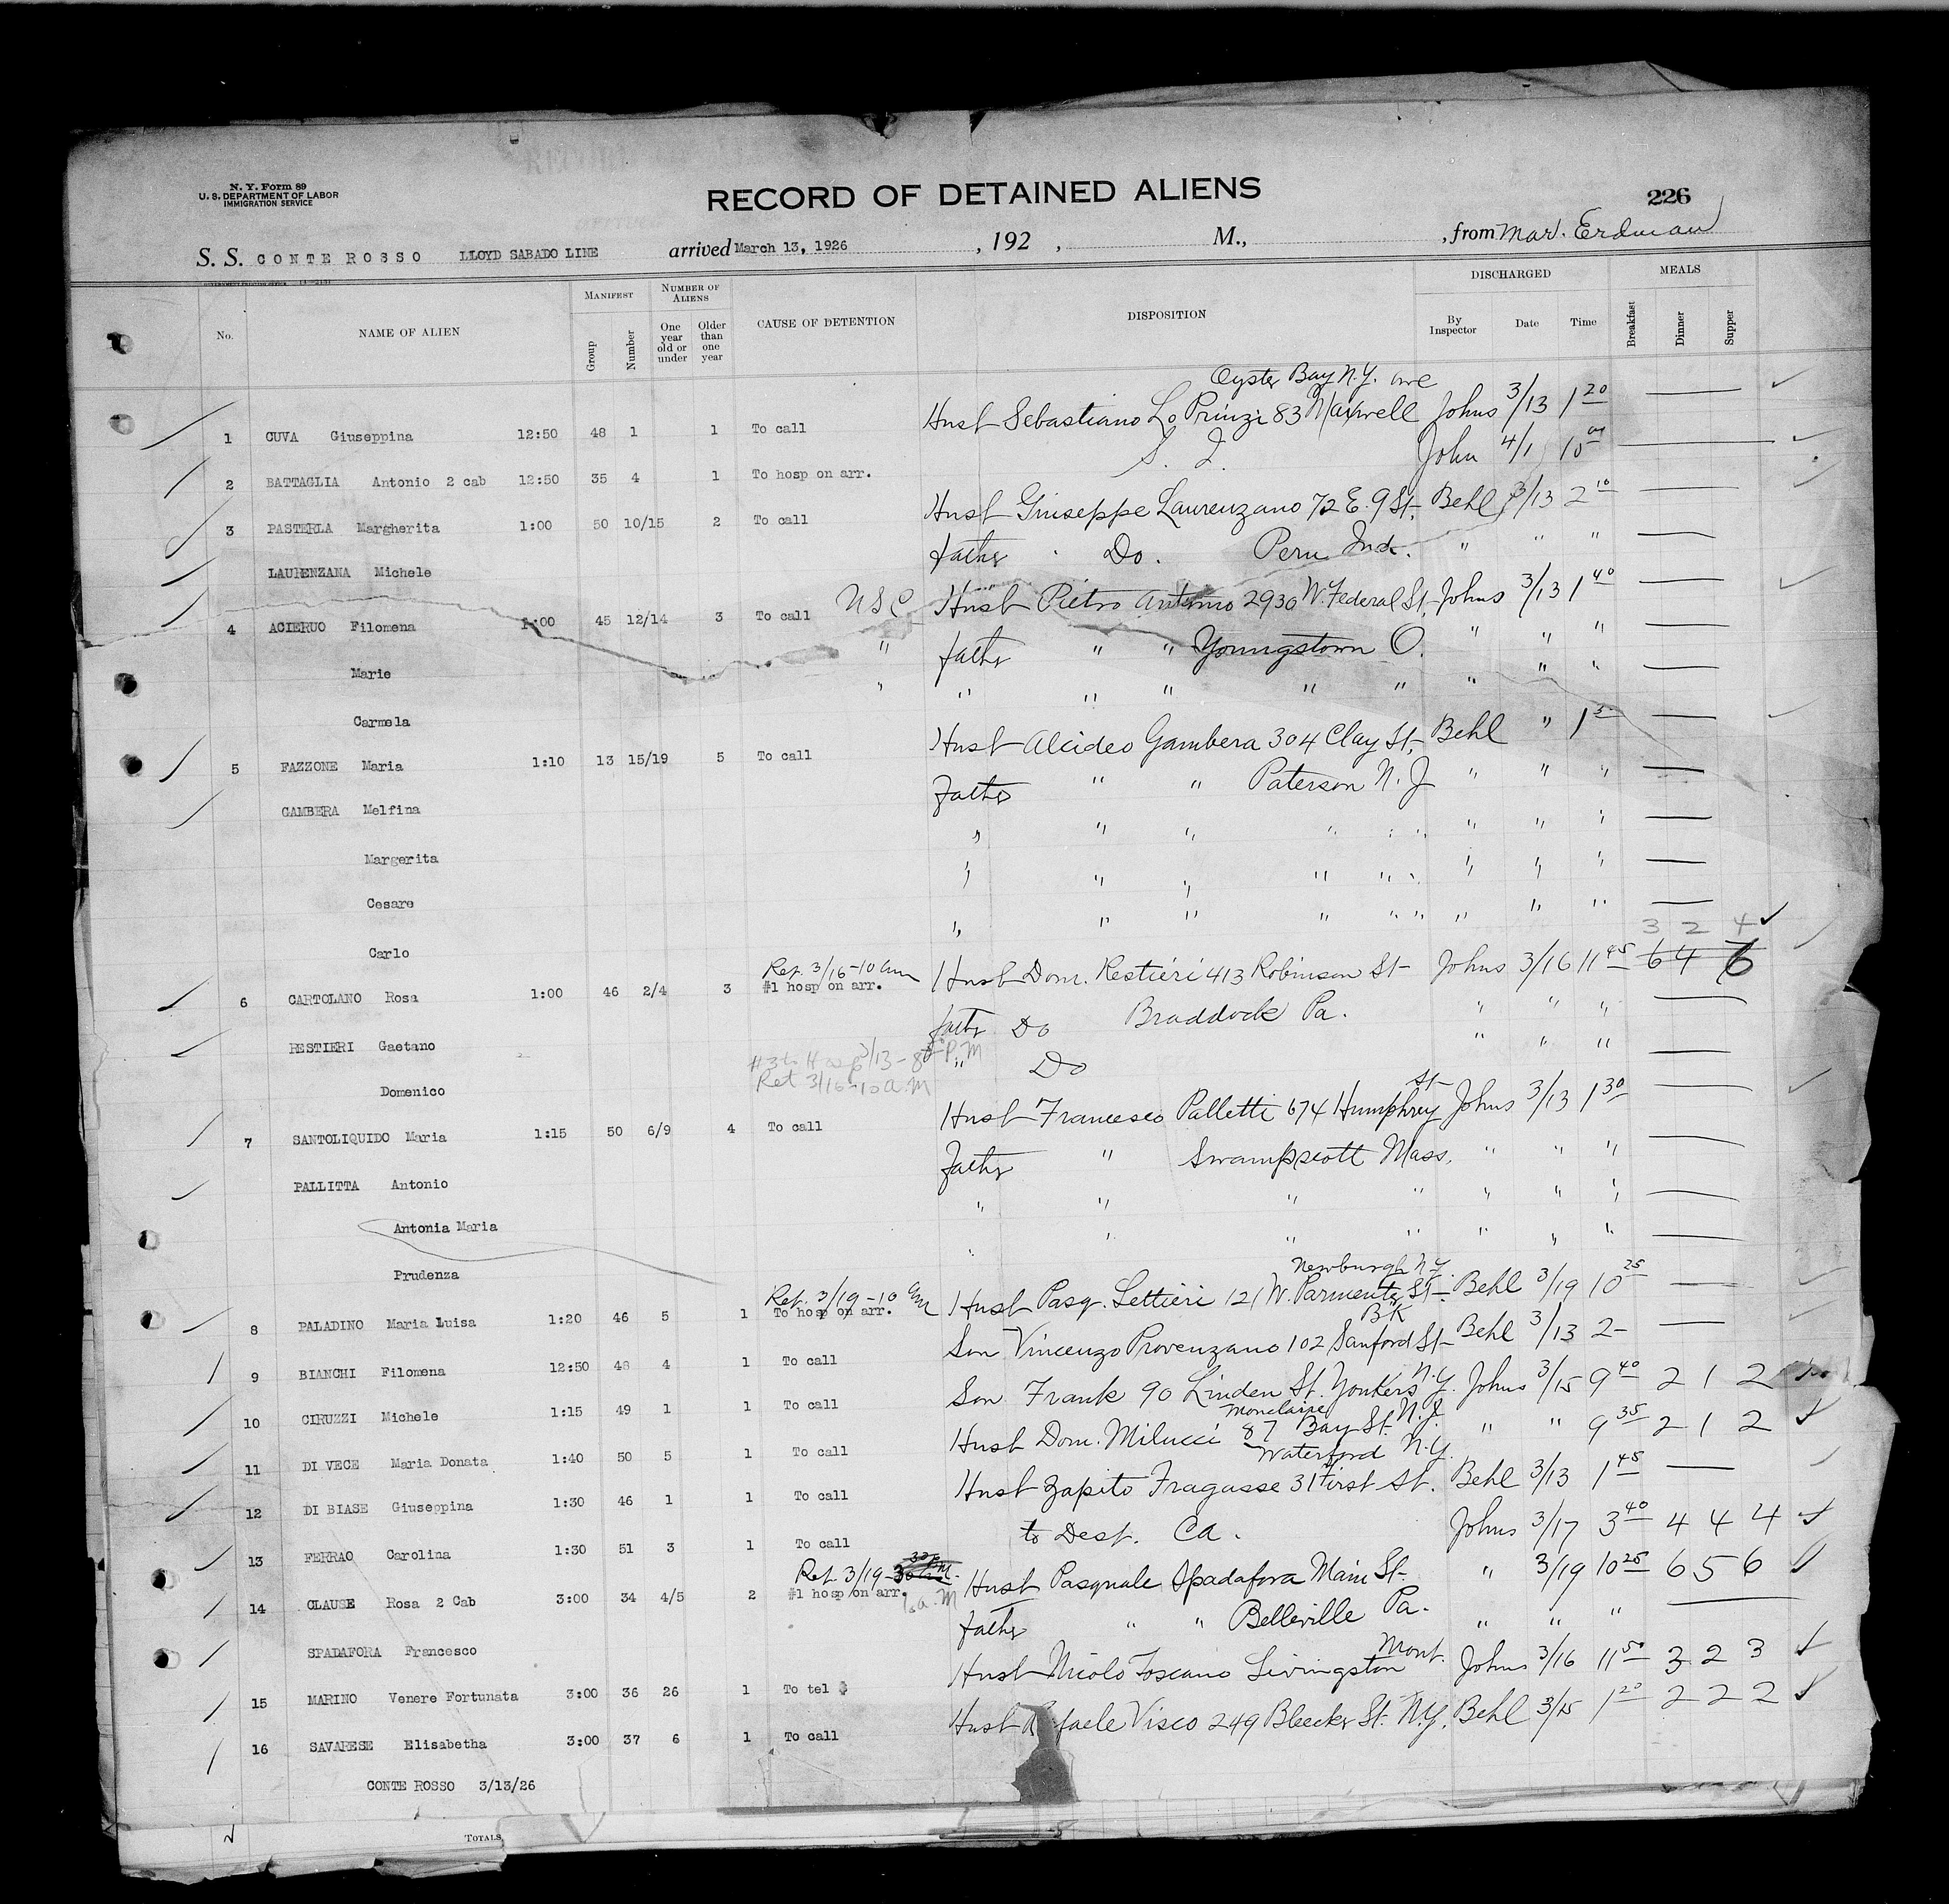 N. Y. Form 89
U. S. DEPARTMENT OF LABOR
IMMIGRATION SERVICE
RECORD OF DETAINED ALIENS
226
S. S. CONTE ROSSO LLOYD SABADO LINE arrived March 13, 1926, 192 , M., , from Mar. Erdman
No. NAME OF ALIEN MANIFEST Group Number NUMBER OF ALIENS One year old or under Older than one year CAUSE OF DETENTION DISPOSITION DISCHARGED By Inspector Date Time MEALS Breakfast Dinner Supper
Oyster Bay N.Y. ave
1 CUVA Giuseppina 12:50 48 1 1 To call Husb Sebastiano Lo Prinzi 83 Maxwell Johns 3/13 1 20
2 BATTAGLIA Antonio 2 cab 12:50 35 4 1 To hosp on arr. S. I. John 4/1 10
3 PASTERLA Margherita 1:00 50 10/15 2 To call Husb Giuseppe Laurenzano 72 E. 9 St. Behl 3/13 2 10
LAURENZANA Michele father Do. Peru Ind. " " "
4 ACIERUO Filomena 1:00 45 12/14 3 To call USC Husb Pietro Antonio 2930 W. Federal St. Johns 3/13 1 40
Marie " father " " Youngstown O. " " "
Carmela " " " " " " " " "
5 FAZZONE Maria 1:10 13 15/19 5 To call Husb Alcideo Gambera 304 Clay St. Behl " 1
GAMBERA Melfina Father " " Paterson N. J " " "
Margerita " " " " " " " " "
Cesare " " " " " " " " "
Carlo " " " " " " " " "
3 2 4
Ret. 3/16-10 am
6 CARTOLANO Rosa 1:00 46 2/4 3 #1 hosp on arr. Husb Dom. Restieri 413 Robinson St Johns 3/16 11 45 6 4 6
RESTIERI Gaetano father Do Braddock Pa. " " "
#3 to Hosp 3/13 - 8 P.M
Ret 3/16-10 a.M
Domenico " Do " " "
St
7 SANTOLIQUIDO Maria 1:15 50 6/9 4 To call Husb Francesco Palletti 674 Humphrey Johns 3/13 1 30
PALLITTA Antonio Father " Swampscott Mass. " " "
Antonia Maria " " " " " " "
Prudenza " " " " " " "
Newburgh N.Y.
Ret. 3/19-10 am
8 PALADINO Maria Luisa 1:20 46 5 1 To hosp on arr. Husb Pasq. Lettieri 121 W. Parmenter St. Behl 3/19 10 25
BK
9 BIANCHI Filomena 12:50 48 4 1 To call Son Vincenzo Provenzano 102 Sanford St Behl 3/13 2-
10 CIRUZZI Michele 1:15 49 1 1 To call Son Frank 90 Linden St. Yonkers N.Y. Johns 3/15 9 40 2 1 2
11 DI VECE Maria Donata 1:40 50 5 1 To call Husb Dom. Milucci 87 Bay St. Monclaire N.J. " " 9 35 2 1 2
Waterford N.Y.
12 DI BIASE Giuseppina 1:30 46 1 1 To call Husb Zapito Fragasse 31 First St. Behl 3/13 1 45
13 FERRAO Carolina 1:30 51 3 1 To call to Dest. Ca. Johns 3/17 3 40 4 4 4
Ret. 3/19-
14 CLAUSE Rosa 2 Cab 3:00 34 4/5 2 #1 hosp on arr. 10 a.M Husb Pasquale Spadafora Main St. " 3/19 10 25 6 5 6
SPADAFORA Francesco father " " Belleville Pa. " " "
15 MARINO Venere Fortunata 3:00 36 26 1 To tel $ Husb Nicolo Toscano Livingston Mont. Johns 3/16 11 50 3 2 3
16 SAVARESE Elisabetha 3:00 37 6 1 To call Husb Visco 249 Bleecker St. N.Y. Behl 3/15 1 20 2 2 2
CONTE ROSSO 3/13/26
TOTALS